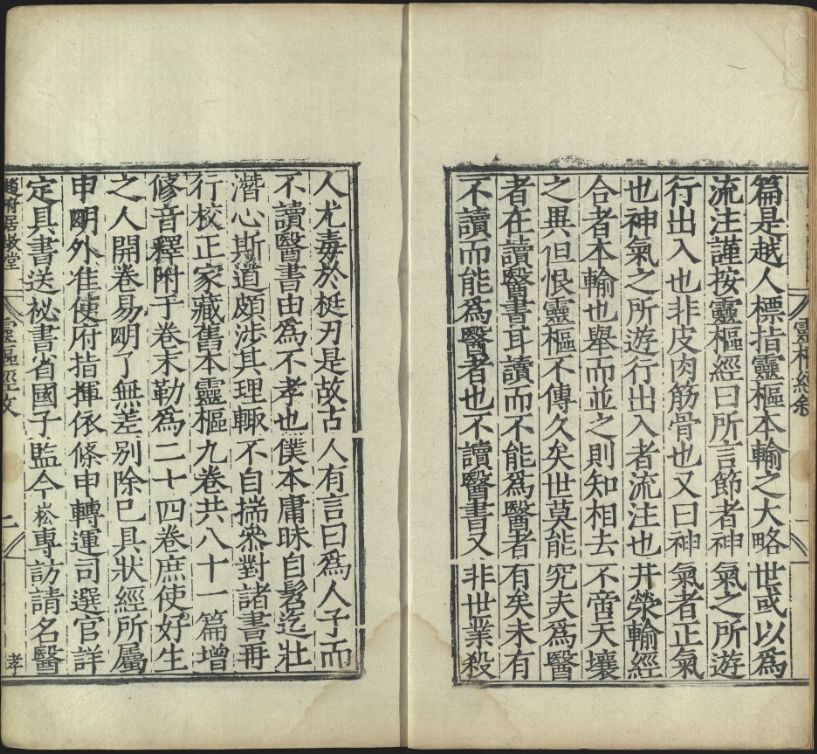 靈樞經叙
一
篇是越人標指靈樞本輸之大略世或以為
流注謹按靈樞經曰所言節者神氣之所遊
行出入也非皮肉筋骨也又曰神氣者正氣
也神氣之所遊行出入者流注也井滎輸經
合者本輸也舉而並之則知相去不啻天壤
之異但恨靈樞不傳久矣世莫能究夫為醫
者在讀醫書耳讀而不能為醫者有矣未有
不讀而能為醫者也不讀醫書又非世業殺
人尤毒於梃刃是故古人有言曰為人子而
不讀醫書由為不孝也僕本庸昧自髫迄壯
潛心斯道頗涉其理輙不自揣叅對諸書再
行校正家藏舊本靈樞九卷共八十一篇增
修音釋附于卷末勒為二十四卷庶使好生
之人開卷易明了無差别除已具狀經所屬
申明外准使府指揮依條申轉運司選官詳
定具書送祕書省國子監今崧專訪請名醫
趙府居敬堂
靈樞經叙
二
孝